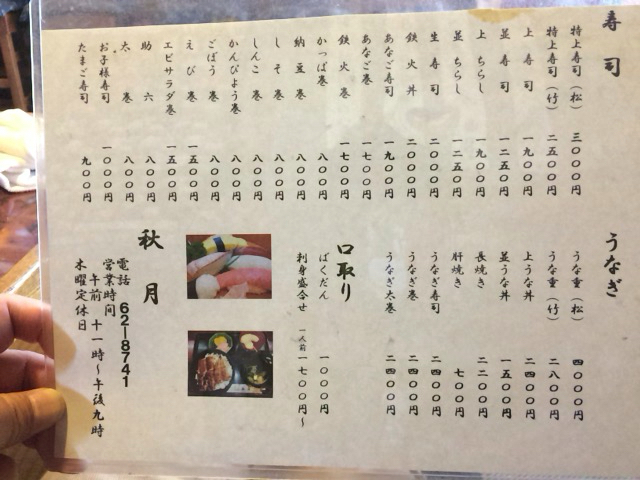 寿司
特上寿司(松) 三〇〇〇円
特上寿司(竹) 二五〇〇円
上寿司 一九〇〇円
並寿司 一二五〇円
上ちらし 一九〇〇円
並ちらし 一二五〇円
生寿司 二〇〇〇円
鉄火丼 二〇〇〇円
あなご寿司 一九〇〇円
あなご巻 一七〇〇円
鉄火巻 一七〇〇円
かっぱ巻 八〇〇円
納豆巻 八〇〇円
しそ巻 八〇〇円
しんこ巻 八〇〇円
かんぴょう巻 八〇〇円
ごぼう巻 八〇〇円
えび巻 一五〇〇円
エビサラダ巻 一五〇〇円
助六 八〇〇円
太巻 八〇〇円
お子様寿司 一〇〇〇円
たまご寿司 九〇〇円
うなぎ
うな重(松) 四〇〇〇円
うな重(竹) 二八〇〇円
上うな丼 二四〇〇円
並うな丼 一五〇〇円
長焼き 二二〇〇円
肝焼き 七〇〇円
うなぎ寿司 二四〇〇円
うなぎ巻 二四〇〇円
うなぎ太巻 二四〇〇円
口取り
ばくだん 一〇〇〇円
刺身盛合せ 一人前一七〇〇円～
秋月
電話 62―8741
営業時間
午前十一時～午後九時
木曜定休日